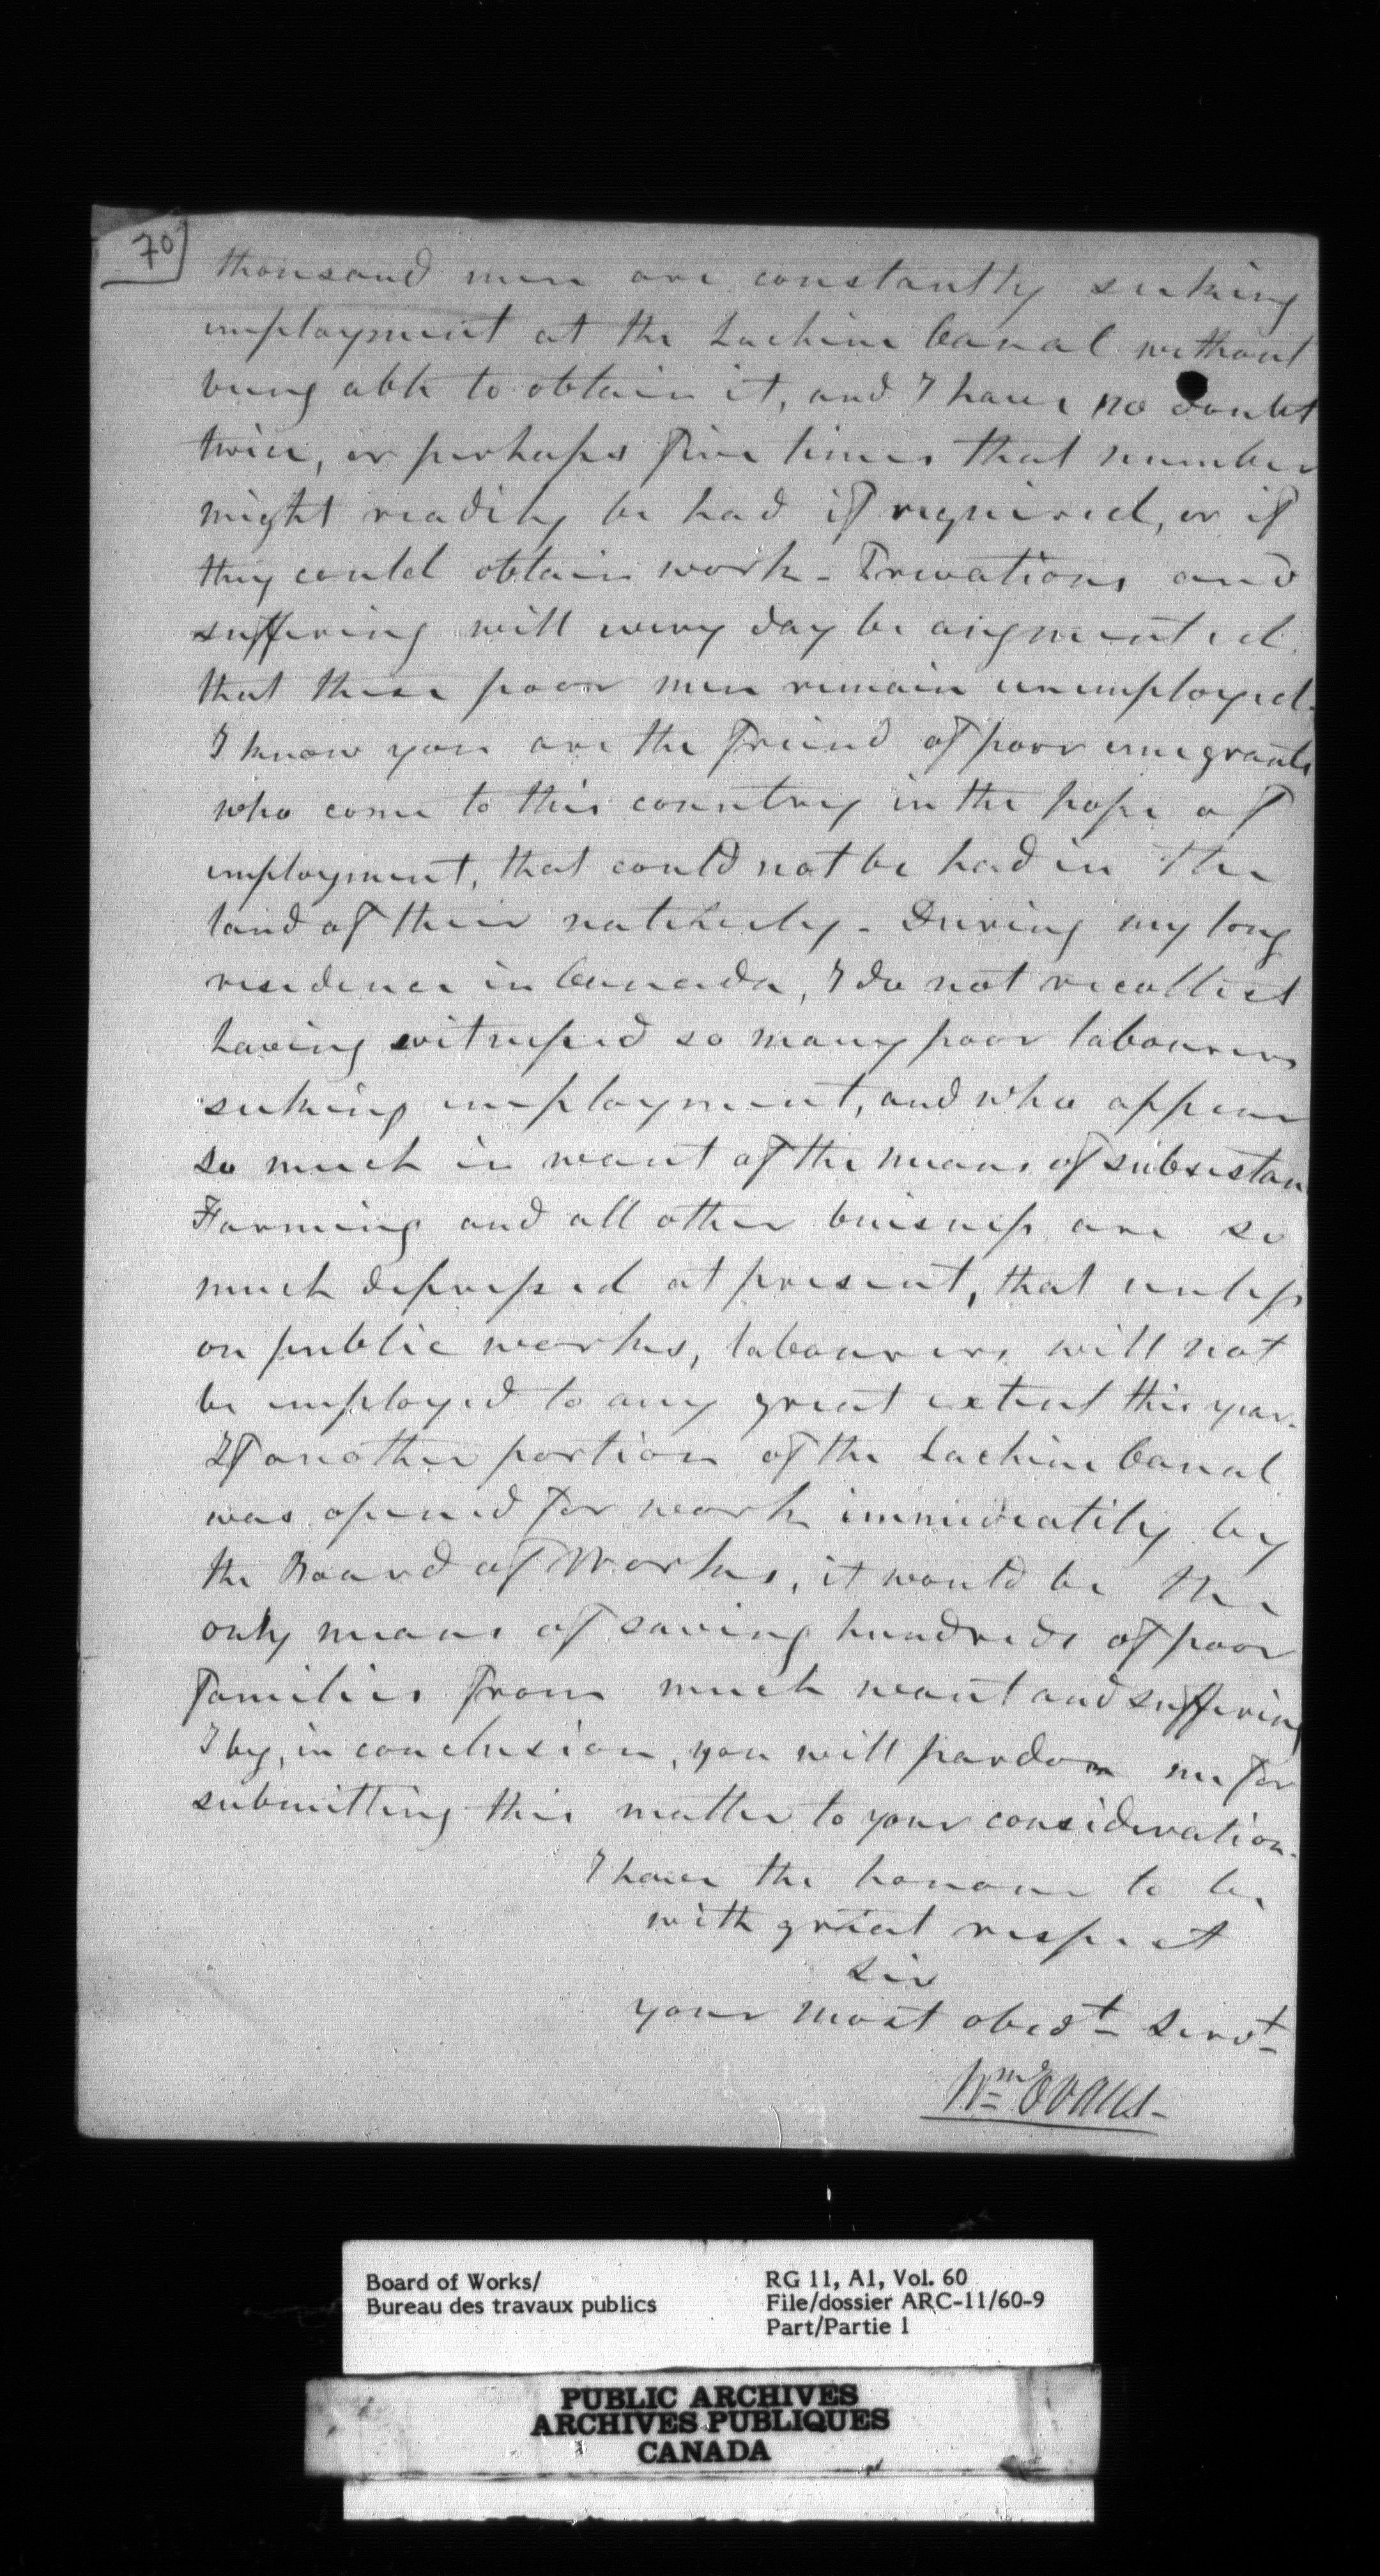 70
thousand men are constantly seeking
employment at the Lachine Canal without
being able to obtain it, and I have no doubt
twice, or perhaps five times that number
might readily be had if required, or if
they could obtain work - Privations and
suffering will every day be augmented
that these poor men remain unemployed.
I know you are the friend of poor emigrants
who come to this country in the hope of
employment, that could not be had in the
land of their - During my long
residence in Canada, I do not recollect
having witnessed so many poor labourers
seeking employment, and who appear
so much in want of the means of subsistan
Farming and all other buisness are so
much depressed at present, that unless
on public works, labourers will not
be employed to any great extent this year.
If another portion of the Lachine Canal
was opened for work immediately by
the Board of Works, it would be the
only means of saving hundreds of poor
families from much want and suffering
I beg, in conclusion, you will pardon me for
submitting this matter to your consideration.
I have the honour to be
with great respect
Sir
your most obedt Servt
Wm Evans-
Board of Works/
Bureau des travaux publics
RG 11, A1, Vol. 60
File/dossier ARC-11/60-9
Part/Partie 1
PUBLIC ARCHIVES
ARCHIVES PUBLIQUES
CANADA